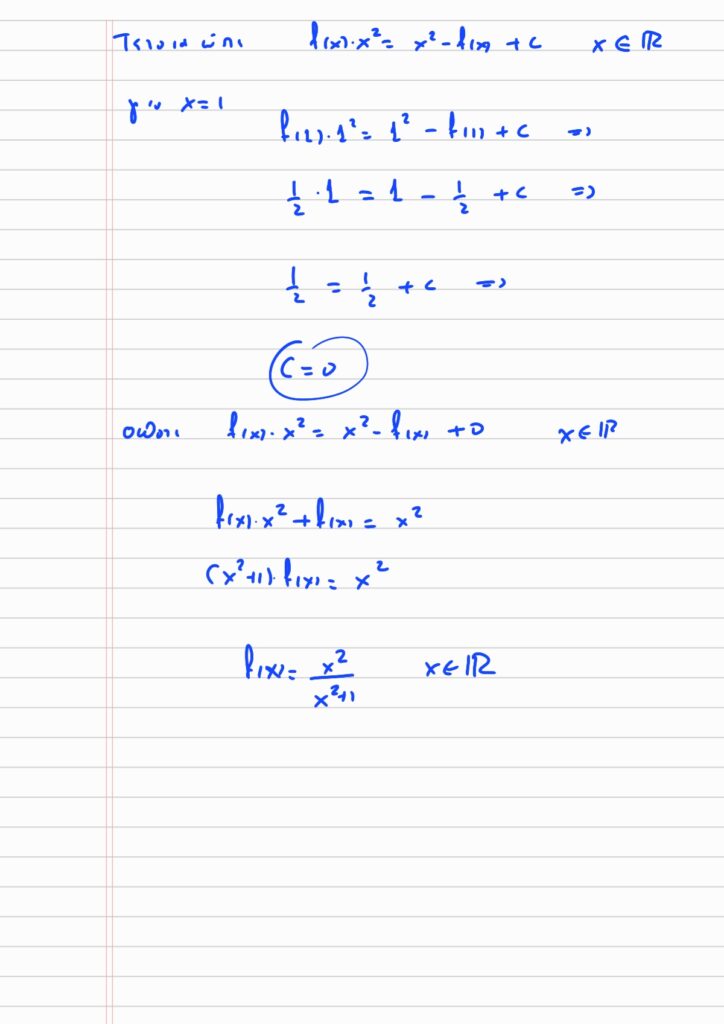 Τελικα ωστε f(x)·x² = x² - f(x) + c x ∈ ℝ
για x=1
f(1)·1² = 1² - f(1) + c =>
1/2 · 1 = 1 - 1/2 + c =>
1/2 = 1/2 + c =>
C = 0
οποτε f(x)·x² = x² - f(x) + 0 x ∈ ℝ
f(x)·x² + f(x) = x²
(x²+1)·f(x) = x²
f(x) = x²/(x²+1) x ∈ ℝ